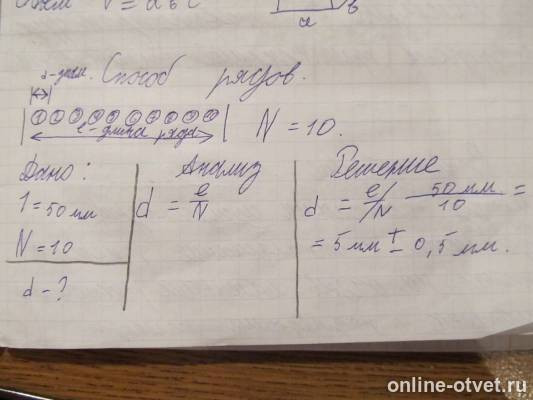 V = a b c
a
b
d-диам. Способ рядов.
l - длина ряда
N = 10.
Дано:
l = 50 мм
N = 10
d - ?
Анализ
d = l/N
Решение
d = l/N 50 мм/10 =
= 5 мм ± 0,5 мм.
online-otvet.ru